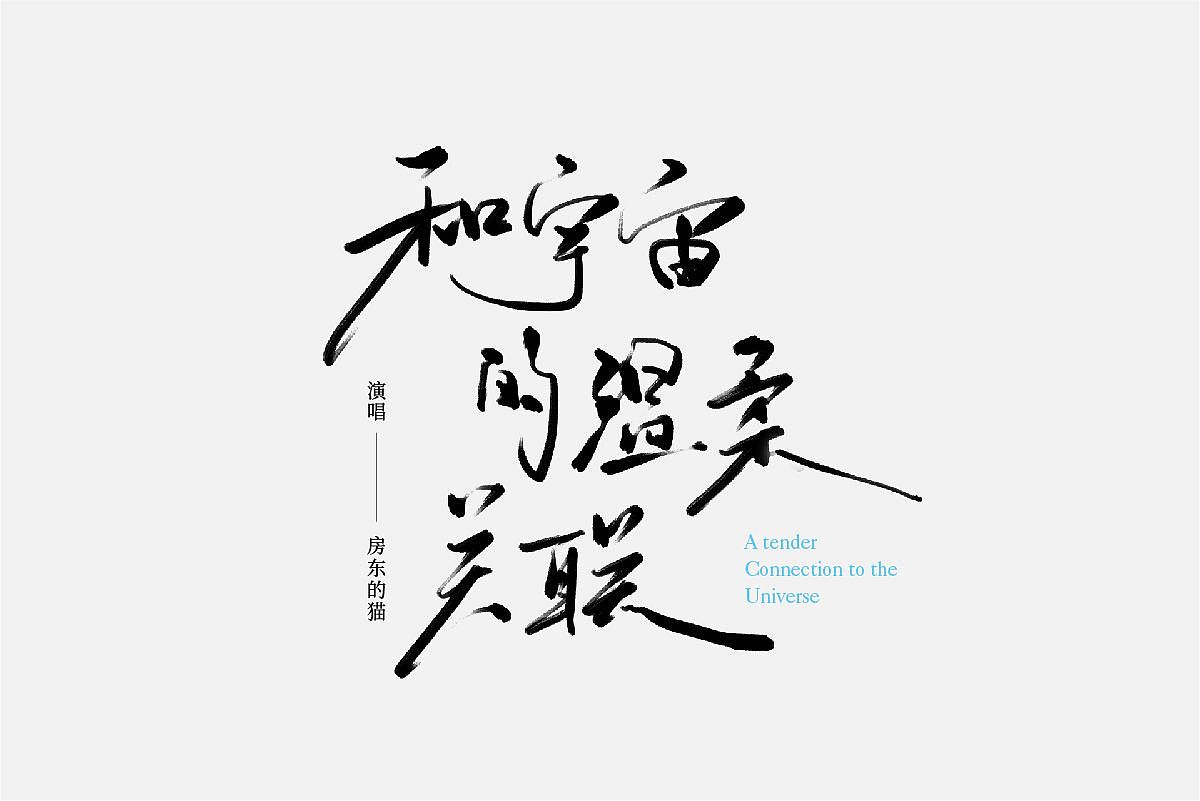 和宇宙
的温柔
关联
演唱——房东的猫
A tender
Connection to the
Universe